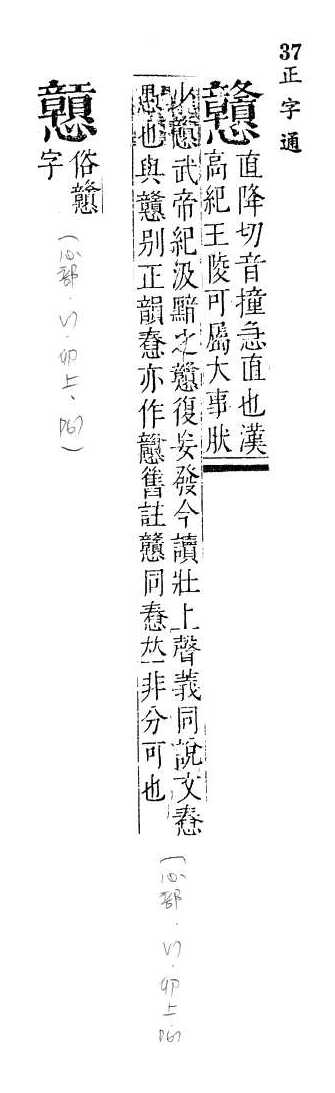 37正字通
戇
直降切音撞急直也漢
高紀王陵可屬大事肰
少戇武帝紀汲黯之戇復妄發今讀壯上聲義同說文惷
愚也與戇別正韻惷亦作戇舊註戇同惷𠀤非分可也
(心部.VI.卯上.p67)
俗戇
字
(心部.VI.卯上.p67)